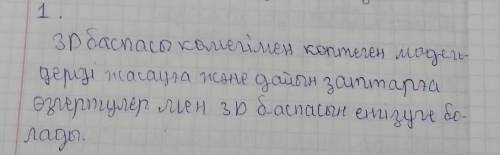 1.
3D баспасы көмегімен көптеген модель-
дерді жасауға және дайын заттарға
өзгертулер мен 3D баспасын енгізуге бо-
лады.